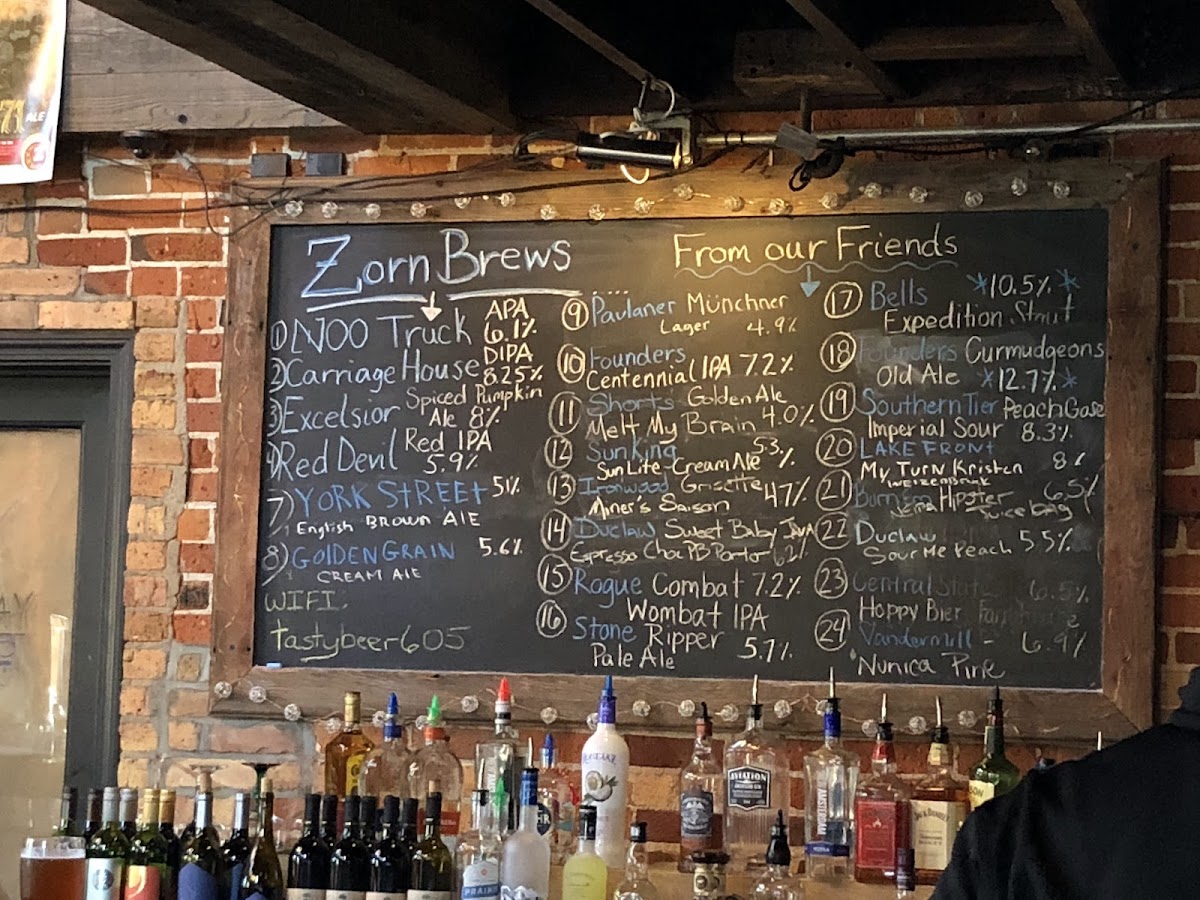 Zorn Brews
1) LV00 Truck APA 6.1%
2) Carriage House DIPA 8.25%
3) Excelsior Spiced Pumpkin Ale 8%
4) Red Devil Red IPA 5.9%
7) YORK StREEt 5.1%
English BROWN ALE
8) GOLDEN GRAIN 5.6%
CREAM ALE
WIFI.
tastybeer605
From our Friends
9 Paulaner Münchner
Lager 4.9%
10 Founders
Centennial IPA 7.2%
11 Shorts Golden Ale
Melt My Brain 4.0%
12 Sun King 5.3%
Sun Lite-Cream Ale
13 Ironwood Grisette
Miner's Saison 4.7%
14 Duclaw Sweet Baby Java
Espresso Choc PB Porter 6.2%
15 Rogue Combat 7.2%
Wombat IPA
16 Stone Ripper
Pale Ale 5.7%
17 Bells *10.5%*
Expedition Stout
18 Founders Curmudgeons
Old Ale *12.7%*
19 Southern Tier Peach Gose
Imperial Sour 8.3%
20 LAKE FRONT
My Turn Kristen 8%
WEIZENBOCK
21 Hipster 6.5%
Juice bag
22 Duclaw
Sour Me Peach 5.5%
23 Central State 6.5%
Hoppy Bier Farmhouse
24 Vandermill - 6.9%
Nunica Pine
ALE
AVIATION
AMSTERDAM